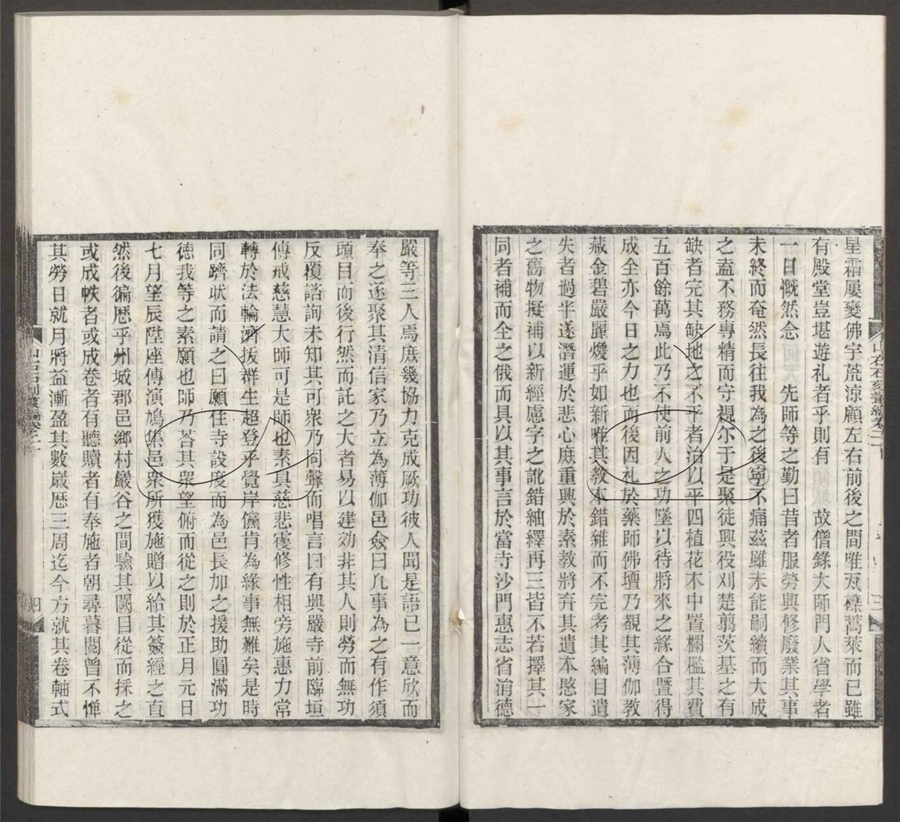 星霜屢變佛宇荒涼顧左右前後之間唯瓦礫蒿萊而已雖
有殿堂豈堪遊礼者乎則有　故僧錄大師門人省學者
一日慨然念　先師等之勤曰昔者服勞興修廢業其事
未終而奄然長往我為之後寧不痛茲雖未能嗣續而大成
之盍不務專精而守視尒于是聚徒興役刈楚翦茨基之有
缺者完其缺地之不平者治以平四植花木中置欄檻其費
五百餘萬焉此乃不使前人之功墜以待將來之緣合暨得
成全亦今日之力也而後因礼於藥師佛壇乃覩其薄伽教
藏金碧嚴麗煥乎如新唯其教本錯雜而不完考其編目遺
失者過半遂潛運於悲心庶重興於素教將弃其遺本愍家
之舊物擬補以新經慮字之訛錯紬繹再三皆不若擇其一
同者補而全之俄而具以其事言於當寺沙門惠志省涓德
嚴等三人焉庶幾協力克成厥功彼人聞是語已一意欣而
奉之遂聚其清信家乃立為薄伽邑僉曰凡事為之有作須
頭目而後行然而託之大者易以建効非其人則勞而無功
反覆諮詢未知其可衆乃同聲而唱言曰有興嚴寺前臨垣
傳戒慈慧大師可是師也素具慈悲寖修性相旁施惠力常
轉於法輪濟拔群生超登乎覺岸儻肯為緣事無難矣是時
同躋狀而請之曰願住寺設度而為邑長加之援助圓滿功
德我等之素願也師乃荅其衆望俯而從之則於正月元日
七月望辰陞座傳演鳩集邑衆所獲施贈以給其簽經之直
然後徧歷乎州城郡邑鄉村巖谷之間驗其闕目從而採之
或成帙者或成卷者有聽贖者有奉施者朝尋暮閱曾不憚
其勞日就月將益漸盈其數歲歷三周迄今方就其卷軸式